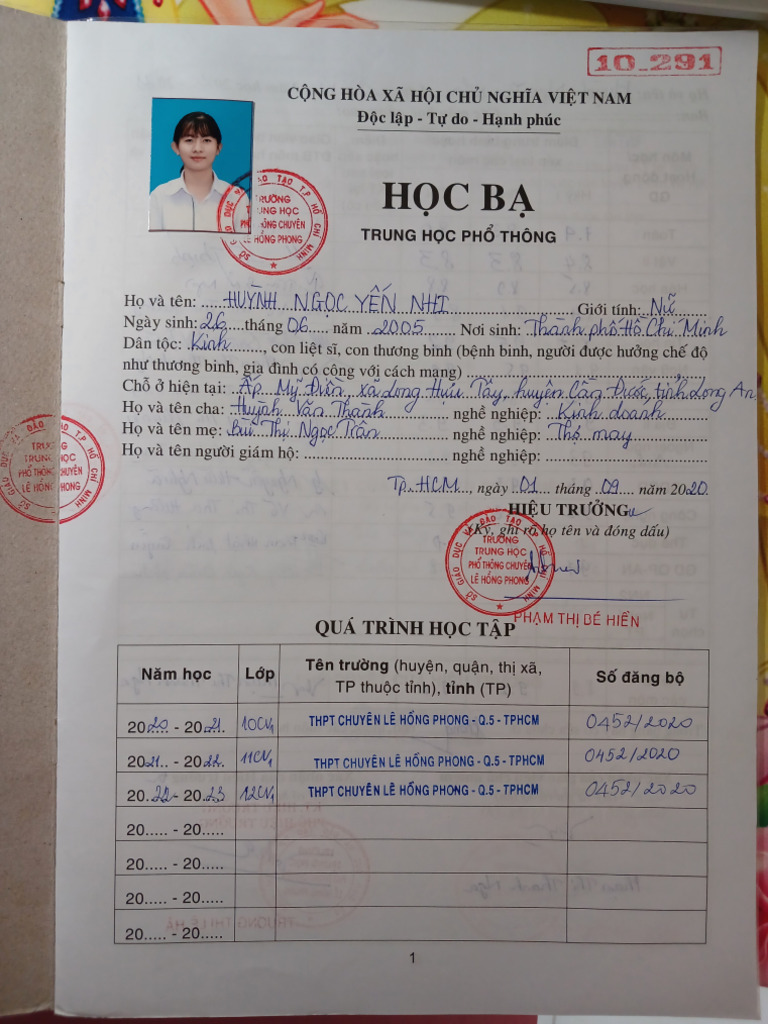 10_291
CỘNG HÒA XÃ HỘI CHỦ NGHĨA VIỆT NAM
Độc lập - Tự do - Hạnh phúc
HỌC BẠ
TRUNG HỌC PHỔ THÔNG
SỞ GIÁO DỤC VÀ ĐÀO TẠO T.P HỒ CHÍ MINH
TRƯỜNG
TRUNG HỌC
PHỔ THÔNG CHUYÊN
LÊ HỒNG PHONG
Họ và tên: HUỲNH NGỌC YẾN NHI Giới tính: Nữ
Ngày sinh: 26 tháng 06 năm 2005 Nơi sinh: Thành phố Hồ Chí Minh
Dân tộc: Kinh, con liệt sĩ, con thương binh (bệnh binh, người được hưởng chế độ
như thương binh, gia đình có công với cách mạng)
Chỗ ở hiện tại: Ấp Mỹ Điền, xã Long Hựu Tây, huyện Cần Đước, tỉnh Long An
Họ và tên cha: Huỳnh Văn Thành nghề nghiệp: Kinh doanh
Họ và tên mẹ: Bùi Thị Ngọc Trân nghề nghiệp: Thợ may
Họ và tên người giám hộ: nghề nghiệp:
SỞ GIÁO DỤC VÀ ĐÀO TẠO T.P HỒ CHÍ MINH
TRƯỜNG
TRUNG HỌC
PHỔ THÔNG CHUYÊN
LÊ HỒNG PHONG
Tp. HCM, ngày 01 tháng 09 năm 2020
HIỆU TRƯỞNG
(Ký, ghi rõ họ tên và đóng dấu)
SỞ GIÁO DỤC VÀ ĐÀO TẠO T.P HỒ CHÍ MINH
TRƯỜNG
TRUNG HỌC
PHỔ THÔNG CHUYÊN
LÊ HỒNG PHONG
PHẠM THỊ BÉ HIỀN
QUÁ TRÌNH HỌC TẬP
Năm học Lớp Tên trường (huyện, quận, thị xã, TP thuộc tỉnh), tỉnh (TP) Số đăng bộ
2020 - 2021 10CV1 THPT CHUYÊN LÊ HỒNG PHONG - Q.5 - TPHCM 0452/2020
2021 - 2022 11CV1 THPT CHUYÊN LÊ HỒNG PHONG - Q.5 - TPHCM 0452/2020
2022 - 2023 12CV1 THPT CHUYÊN LÊ HỒNG PHONG - Q.5 - TPHCM 0452/2020
20..... - 20.....
20..... - 20.....
20..... - 20.....
20..... - 20.....
1